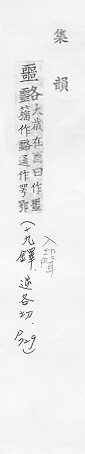 集韻
噩䣈 太歲在酉曰作噩
籀作䣈通作咢鄂
入聲
(十九鐸．逆各切．
P729)